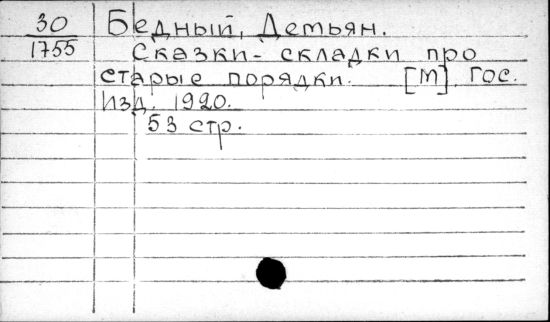 30
1755
Бедный, Демьян.
Сказки-складки про
старые порядки. [М], Гос.
Изд. 1920.
53 стр.